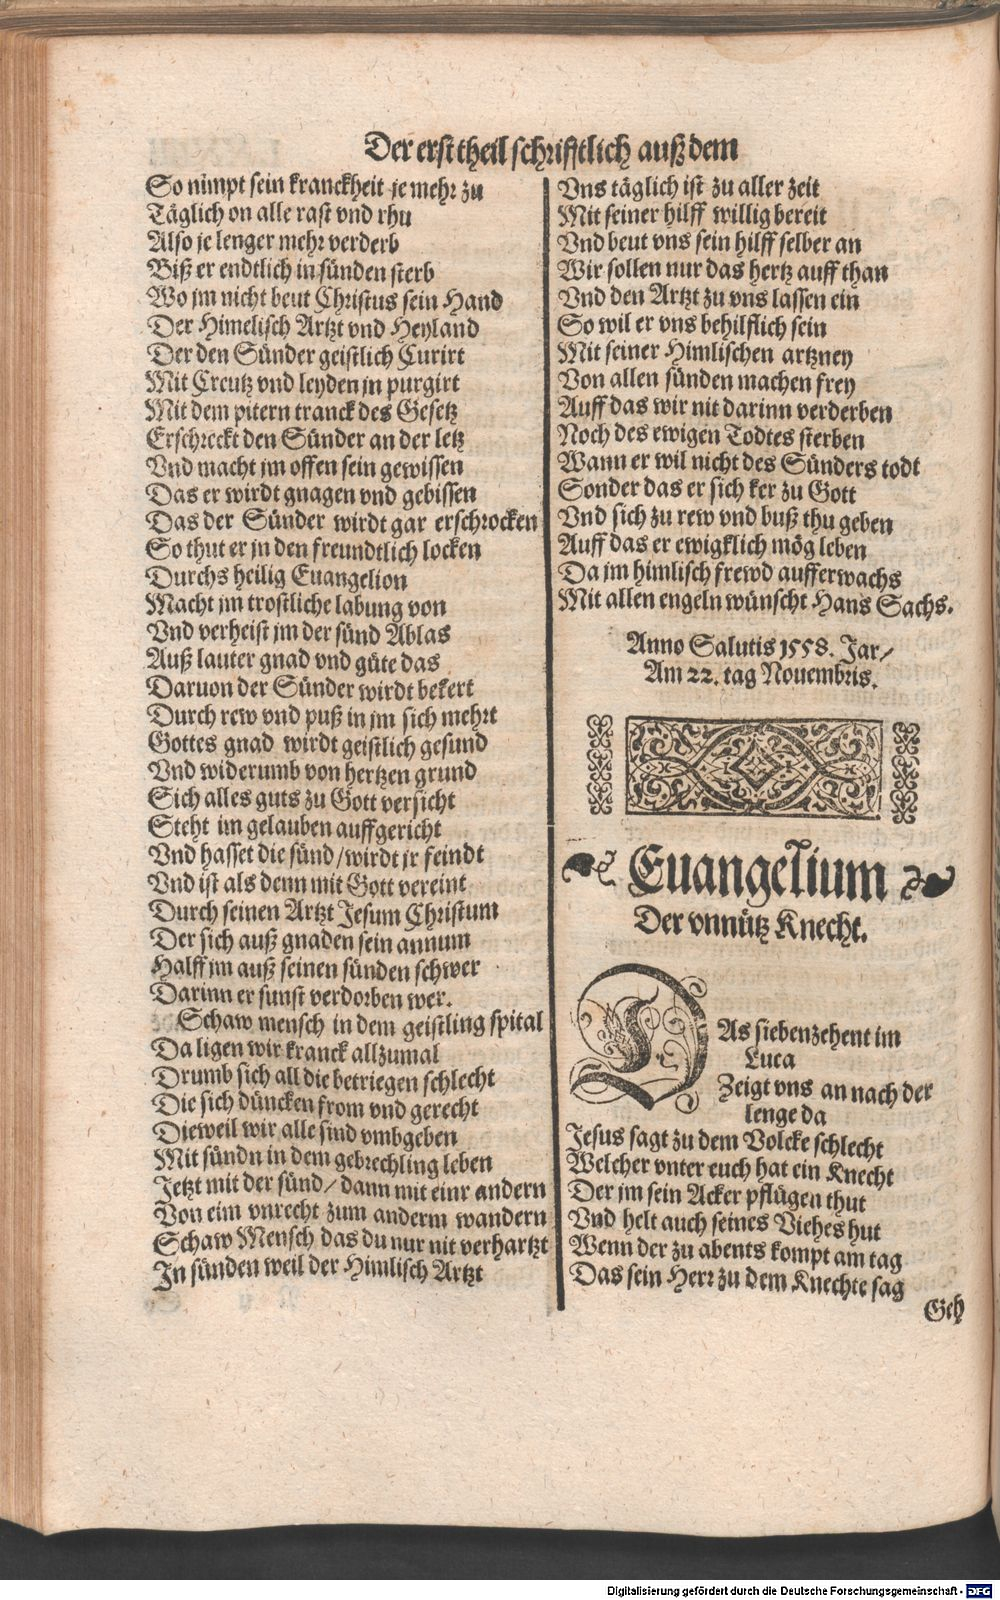 Der erst theil schrifftlich auß dem
So nimpt sein kranckheit je mehr zu
Täglich on alle rast vnd rhu
Also je lenger mehr verderb
Biß er endtlich in sünden sterb
Wo jm nicht beut Christus sein Hand
Der Himelisch Artzt vnd Heyland
Der den Sünder geistlich Curirt
Mit Creutz vnd leyden jn purgirt
Mit dem pitern tranck des Gesetz
Erschreckt den Sünder an der letz
Vnd macht jm offen sein gewissen
Das er wirdt gnagen vnd gebissen
Das der Sünder wirdt gar erschrocken
So thut er jn den freundtlich locken
Durchs heilig Euangelion
Macht jm trostliche labung von
Vnd verheist jm der sünd Ablas
Auß lauter gnad vnd güte das
Daruon der Sünder wirdt bekert
Durch rew vnd puß in jm sich mehrt
Gottes gnad wirdt geistlich gesund
Vnd widerumb von hertzen grund
Sich alles guts zu Gott versicht
Steht im gelauben auffgericht
Vnd hasset die sünd/wirdt jr feindt
Vnd ist als denn mit Gott vereint
Durch seinen Artzt Jesum Christum
Der sich auß gnaden sein annum
Halff jm auß seinen sünden schwer
Darinn er sunst verdorben wer.
Schaw mensch in dem geistling spital
Da ligen wir kranck allzumal
Drumb sich all die betriegen schlecht
Die sich düncken from vnd gerecht
Dieweil wir alle sind vmbgeben
Mit sündn in dem gebrechling leben
Jetzt mit der sünd/ dann mit einr andern
Von eim vnrecht zum anderm wandern
Schaw Mensch das du nur nit verhartzt
In sünden weil der Himlisch Artzt
Vns täglich ist zu aller zeit
Mit seiner hilff willig bereit
Vnd beut vns sein hilff selber an
Wir sollen nur das hertz auff than
Vnd den Artzt zu vns lassen ein
So wil er vns behilflich sein
Mit seiner Himlischen artzney
Von allen sünden machen frey
Auff das wir nit darinn verderben
Noch des ewigen Todtes sterben
Wann er wil nicht des Sünders todt
Sonder das er sich ker zu Gott
Vnd sich zu rew vnd buß thu geben
Auff das er ewigklich mög leben
Da im himlisch frewd aufferwachs
Mit allen engeln wünscht Hans Sachs.
Anno Salutis 1558. Jar/
Am 22. tag Nouembris.
Euangelium
Der vnnütz Knecht.
DAs siebenzehent im
Luca
Zeigt vns an nach der
lenge da
Jesus sagt zu dem Volcke schlecht
Welcher vnter euch hat ein Knecht
Der jm sein Acker pflügen thut
Vnd helt auch seines Viehes hut
Wenn der zu abents kompt am tag
Das sein Herr zu dem Knechte sag
Geh
Digitalisierung gefördert durch die Deutsche Forschungsgemeinschaft - DFG